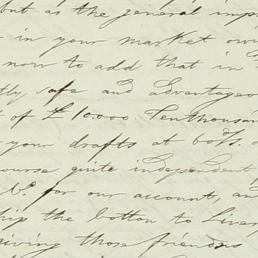 but as the general imp
in your market ow
now to add that in
tly safe and advantageo
of £10.000 Tenthousan
your drafts at 60/ds.
ourse quite independent
for our account, an
hip the cotton to Liver
giving those friends